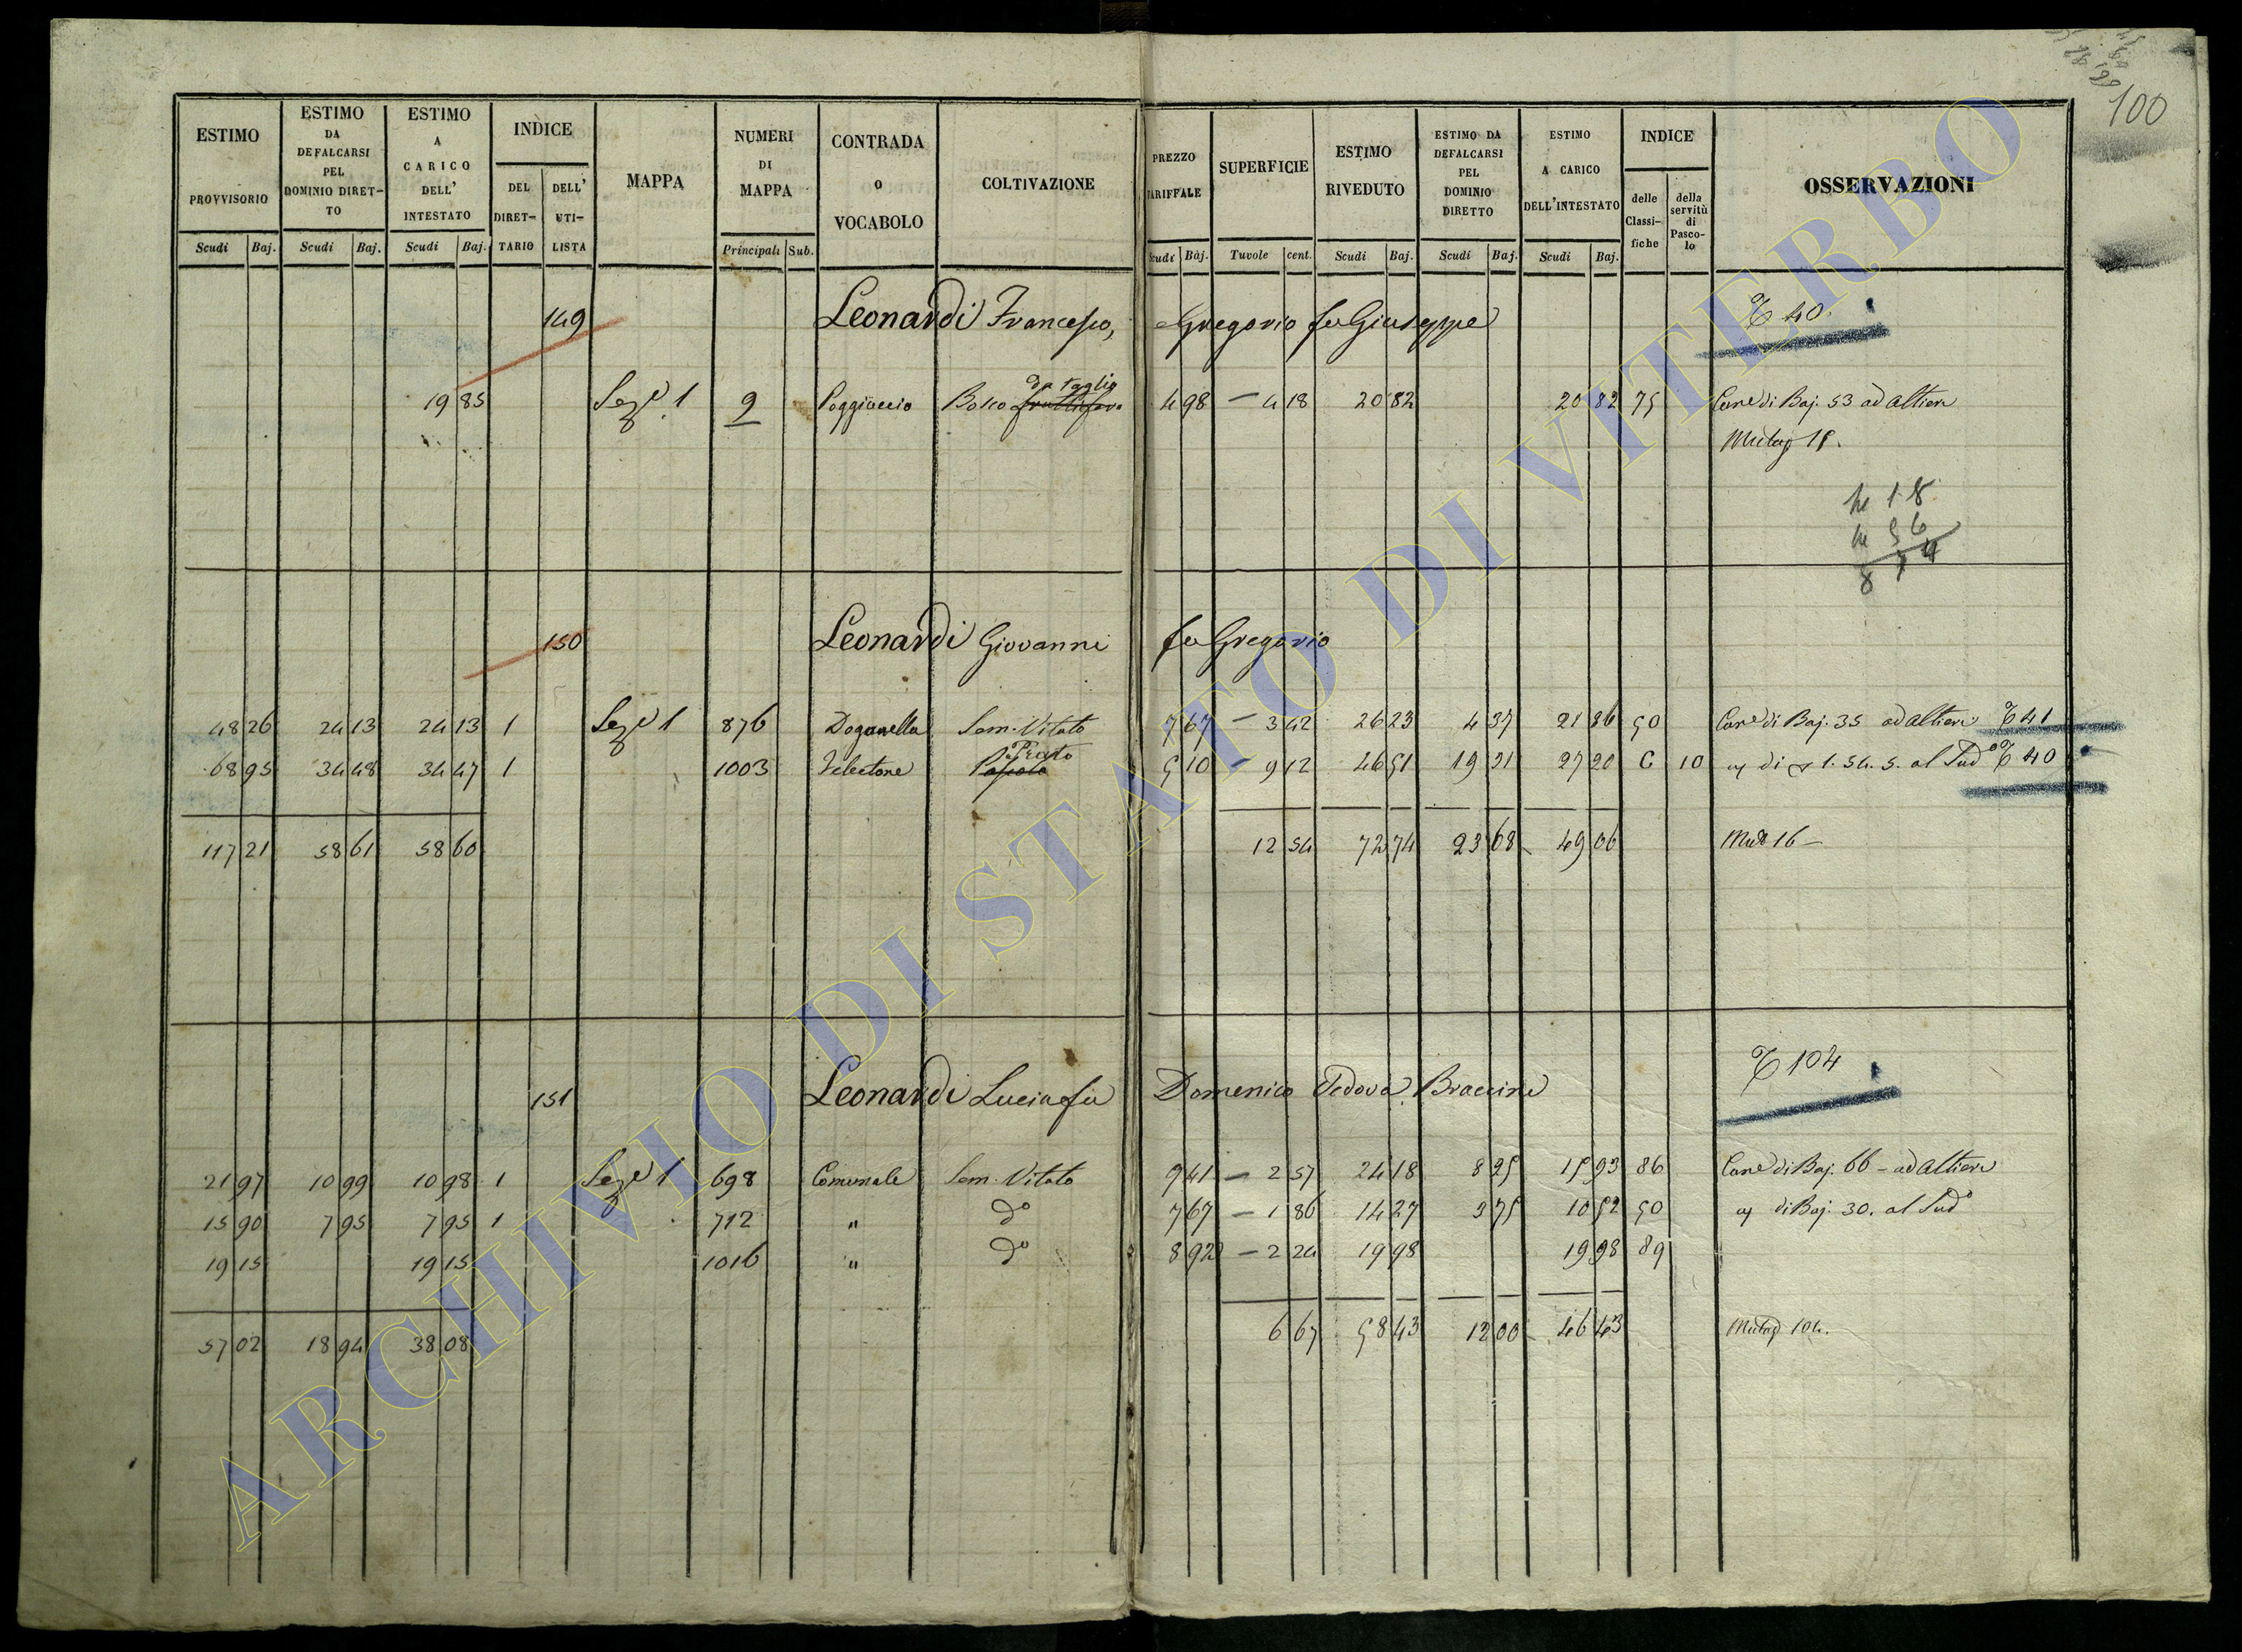 100
ESTIMO PROVVISORIO
ESTIMO DA DEFALCARSI PEL DOMINIO DIRETTO
ESTIMO A CARICO DELL' INTESTATO
INDICE
DEL DIRETTARIO
DELL' UTILISTA
MAPPA
NUMERI DI MAPPA
CONTRADA O VOCABOLO
COLTIVAZIONE
PREZZO TARIFFALE
SUPERFICIE
ESTIMO RIVEDUTO
ESTIMO DA DEFALCARSI PEL DOMINIO DIRETTO
ESTIMO A CARICO DELL'INTESTATO
INDICE
delle Classifiche
della servitù di Pascolo
OSSERVAZIONI
Scudi Baj. Scudi Baj. Scudi Baj. Principali Sub. Scudi Baj. Tavole cent. Scudi Baj. Scudi Baj. Scudi Baj.
149 Leonardi Francesco, e Gregorio fu Giuseppe 40.
19 85 Sez.e 1 9 Poggiaccio Bosco da taglio 4 98 — 4 18 20 82 20 82 75 Can.e di Baj. 53 ad Altieri
150 Leonardi Giovanni fu Gregorio
48 26 24 13 24 13 1 Sez.e 1 876 Doganella Sem. Vitato 7 67 — 3 42 26 23 4 37 21 86 50 Can.e di Baj. 35 ad Altieri 41
68 95 34 48 34 47 1 1003 Pascolo Prato 5 10 — 9 12 46 51 19 31 27 20 C 10 al Sud.o 40
117 21 58 61 58 60 12 54 72 74 23 68 49 06 16 —
151 Leonardi Lucia fu Domenico Vedova Braccini 104
21 97 10 99 10 98 1 Sez.e 1 698 Comunale Sem. Vitato 9 41 — 2 57 24 18 8 25 15 93 86 Can.e di Baj. 66 — ad Altieri
15 90 7 95 7 95 1 712 " d.o 7 67 — 1 86 14 27 3 75 10 52 50 di Baj. 30. al Sud.o
19 15 19 15 1016 " d.o 8 92 — 2 24 19 98 19 98 89
57 02 18 94 38 08 6 67 58 43 12 00 46 43 104.
ARCHIVIO DI STATO DI VITERBO